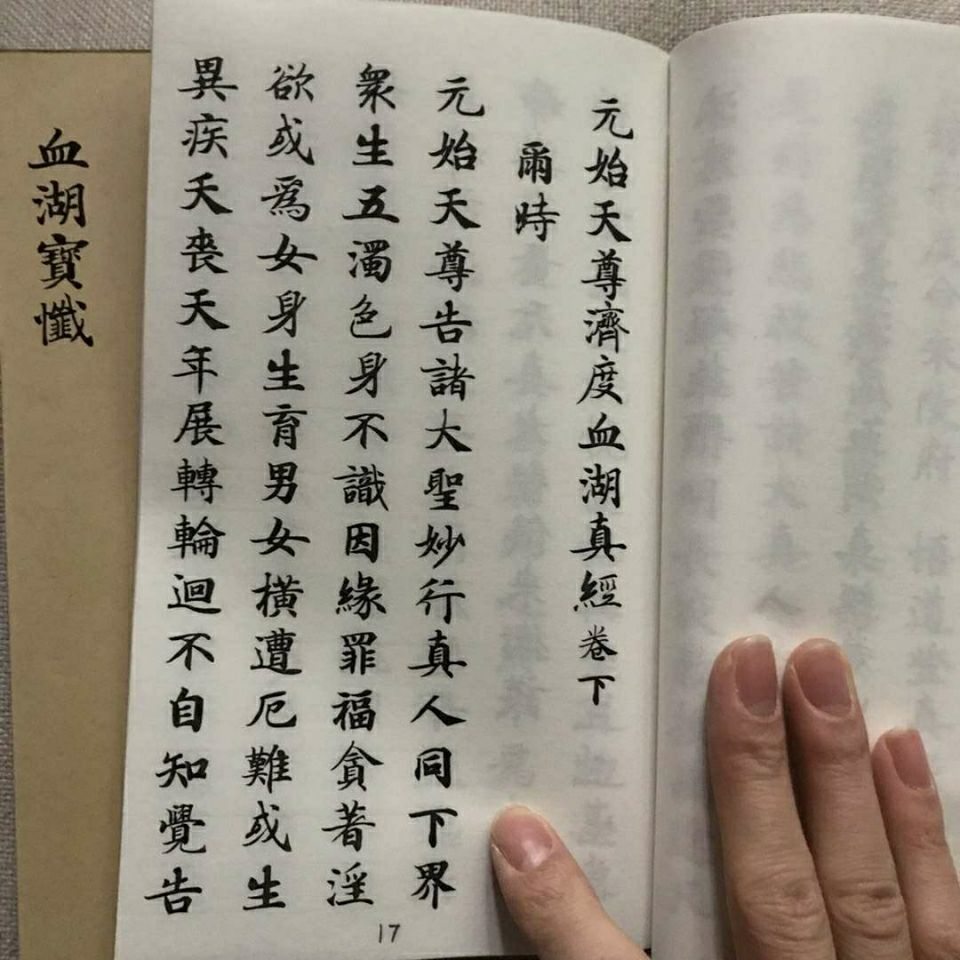 元始天尊濟度血湖真經卷下
爾時
元始天尊告諸大聖妙行真人同下界
衆生五濁色身不識因緣罪福貪著淫
欲或爲女身生育男女橫遭厄難或生
異疾天喪天年展轉輪迴不自知覺告
17
血湖寶懺